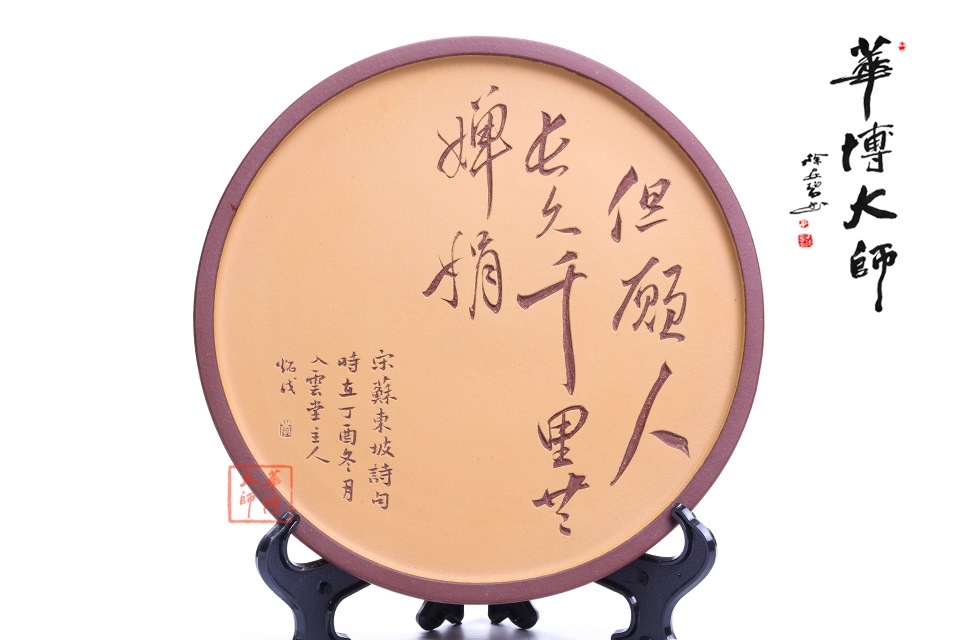 但願人
長久千里共
嬋娟
宋蘇東坡詩句
時在丁酉冬月
入雲堂主人
華博大師
華博
大師